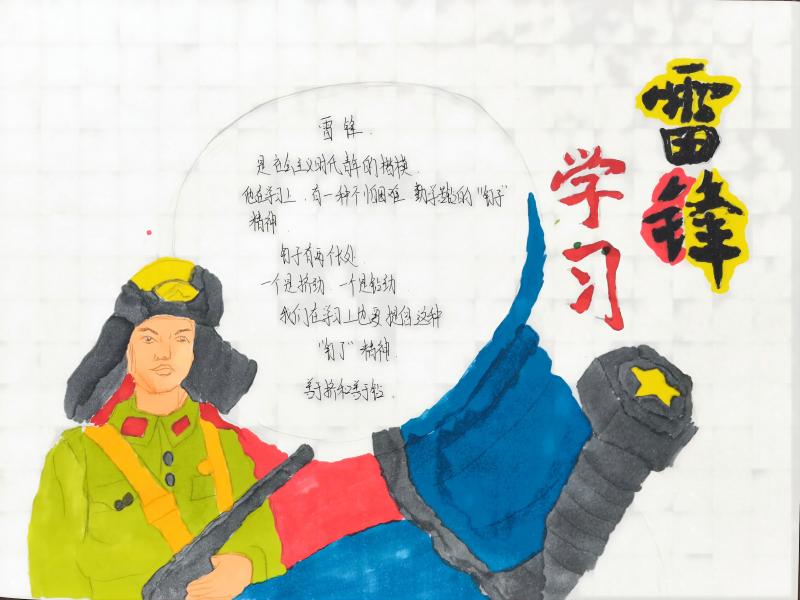 雷锋
学习
雷锋.
是社会主义时代青年的楷模.
他在学习上,有一种不怕困难 勤学苦钻的"钉子"
精神.
钉子有两个长处
一个是挤劲 一个是钻劲
我们在学习上也要提倡这种
"钉子"精神.
善于挤和善于钻.